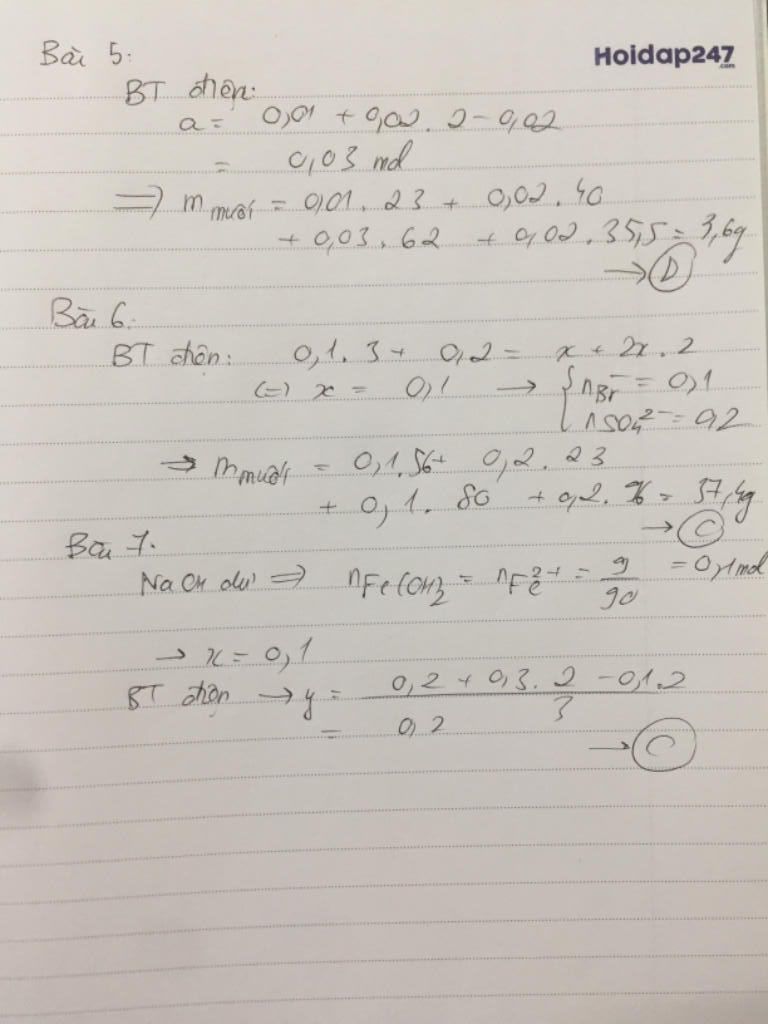 Bài 5:
Hoidap247
.com
BT điện:
a = 0,01 + 0,02 . 2 - 0,02
= 0,03 mol
=> m muối = 0,01 . 23 + 0,02 . 40
+ 0,03 . 62 + 0,02 . 35,5 = 3,6g
→ D
Bài 6:
BT điện: 0,1 . 3 + 0,2 = x + 2x . 2
(=) x = 0,1 → { nBr⁻ = 0,1
nSO₄²⁻ = 0,2
=> m muối = 0,1 . 56 + 0,2 . 23
+ 0,1 . 80 + 0,2 . 96 = 37,4g
→ C
Bài 7:
NaOH dư => nFe(OH)2 = nFe²⁺ = 9/90 = 0,1 mol
→ x = 0,1
BT điện → y = (0,2 + 0,3 . 2 - 0,1 . 2)/3
= 0,2
→ C